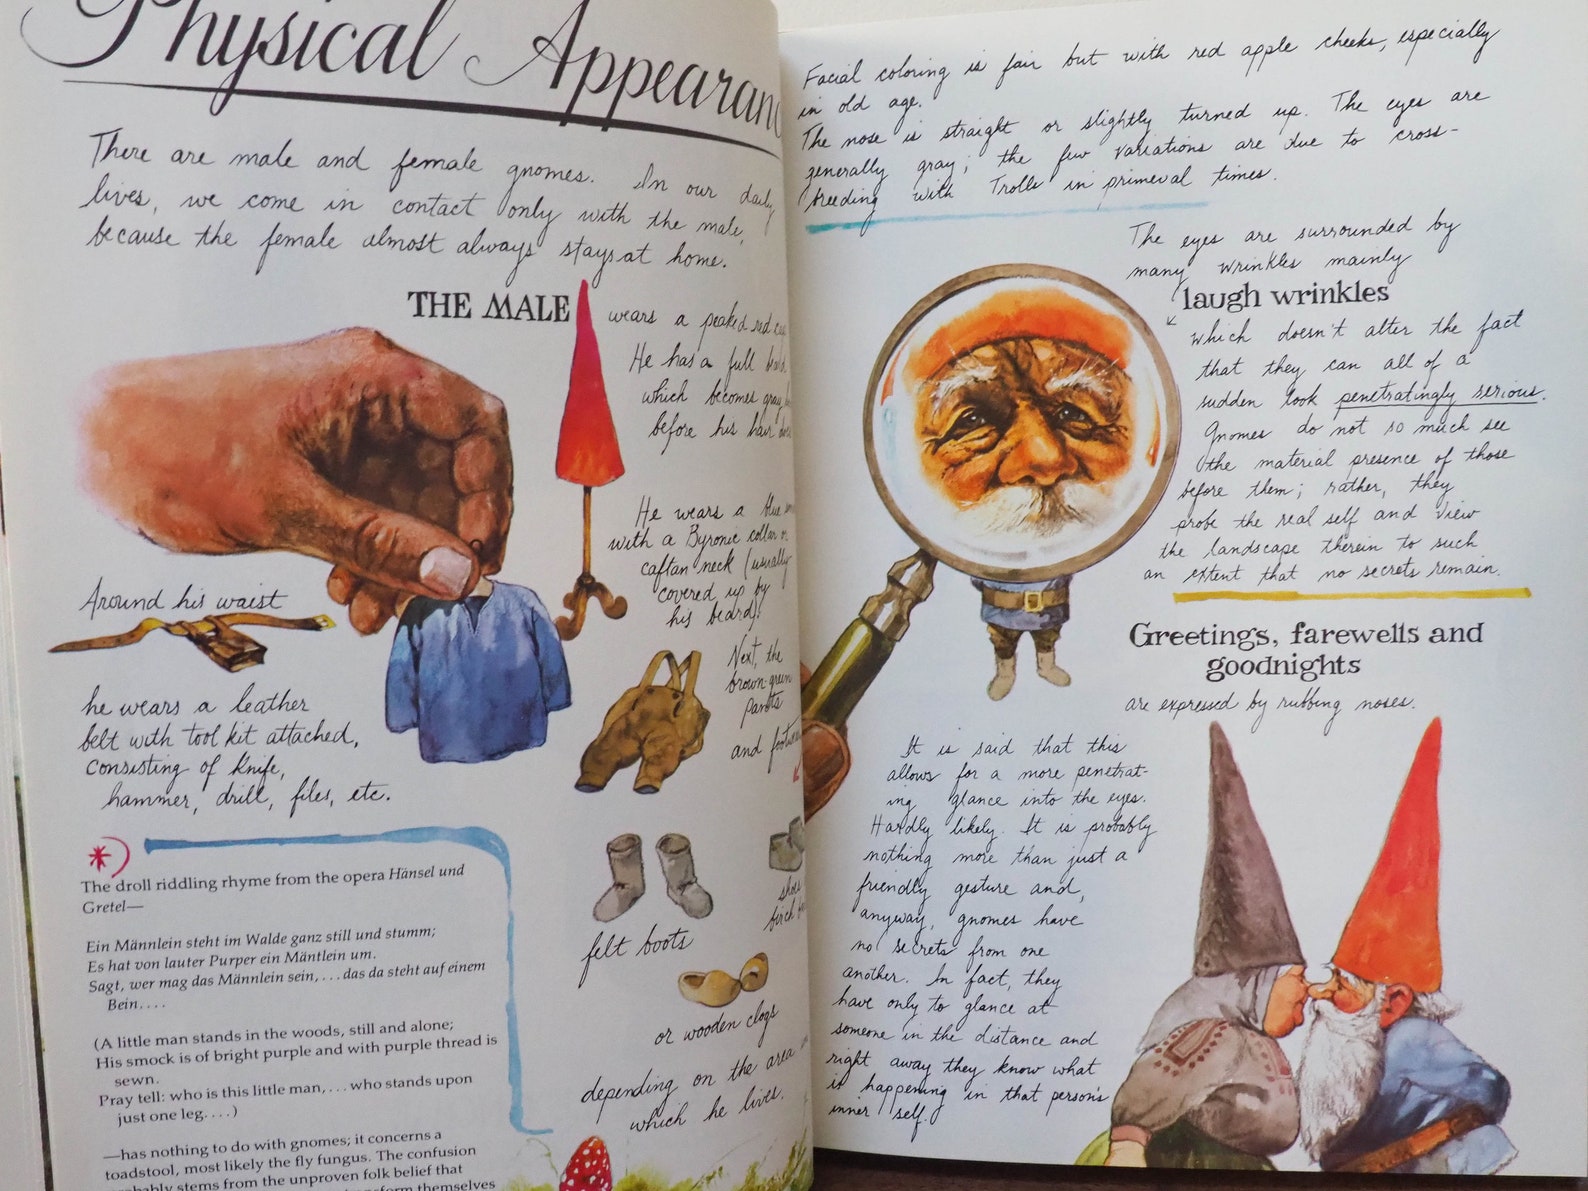 Physical Appearan
There are male and female gnomes. In our daily
lives, we come in contact only with the male,
because the female almost always stays at home.
THE MALE
wears a peaked red
He has a full
which becomes gray
before his hair
He wears a blue
with a Byronic collar or
caftan neck (usually
covered up by
his beard).
Next, the
brown-green
pants
and
Around his waist
he wears a leather
belt with tool kit attached,
consisting of knife,
hammer, drill, files, etc.
shoes
birch
felt boots
or wooden clogs
depending on the area
which he lives.
The droll riddling rhyme from the opera Hänsel und
Gretel—
Ein Männlein steht im Walde ganz still und stumm;
Es hat von lauter Purper ein Mäntlein um.
Sagt, wer mag das Männlein sein, . . . das da steht auf einem
Bein. . . .
(A little man stands in the woods, still and alone;
His smock is of bright purple and with purple thread is
sewn.
Pray tell: who is this little man, . . . who stands upon
just one leg. . . .)
—has nothing to do with gnomes; it concerns a
toadstool, most likely the fly fungus. The confusion
stems from the unproven folk belief that
themselves
Facial coloring is fair but with red apple cheeks, especially
in old age.
The nose is straight or slightly turned up. The eyes are
generally gray; the few variations are due to cross-
breeding with Trolls in primeval times.
The eyes are surrounded by
many wrinkles mainly
laugh wrinkles
which doesn't alter the fact
that they can all of a
sudden look penetratingly serious.
Gnomes do not so much see
the material presence of those
before them; rather, they
probe the real self and view
the landscape therein to such
an extent that no secrets remain.
Greetings, farewells and
goodnights
are expressed by rubbing noses.
It is said that this
allows for a more penetrat-
ing glance into the eyes.
Hardly likely. It is probably
nothing more than just a
friendly gesture and,
anyway, gnomes have
no secrets from one
another. In fact, they
have only to glance at
someone in the distance and
right away they know what
is happening in that person's
inner self.